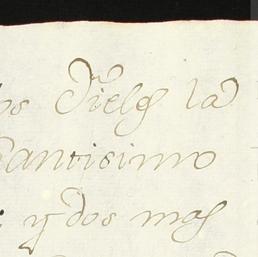 os Fieles la
Santisimo
y dos mas